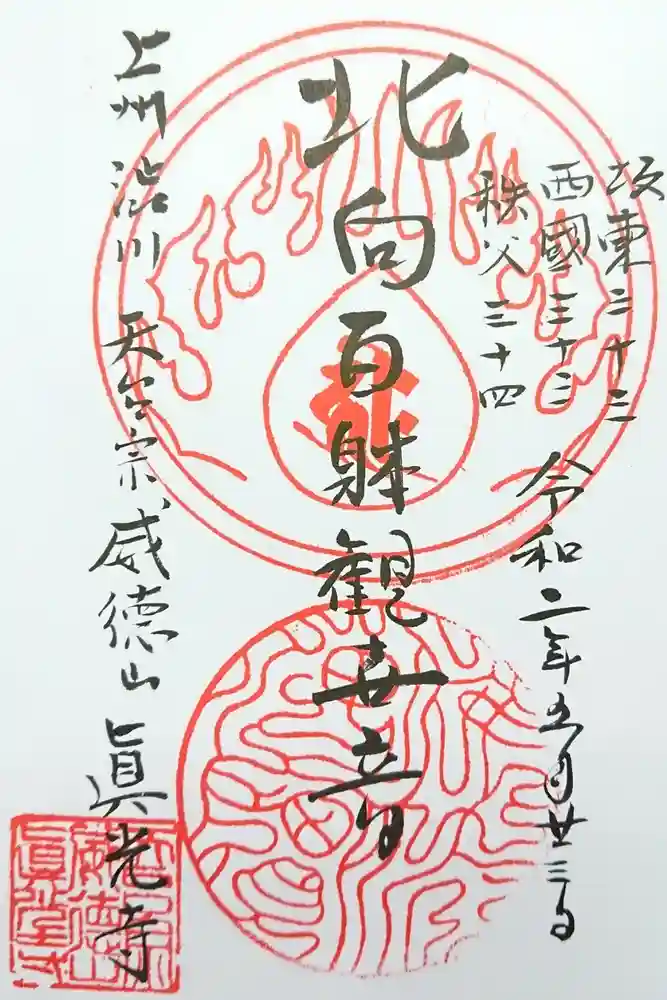 坂東三十三
西國三十三
秩父三十四
令和二年五月廿三日
北向百躰観世音
上州渋川天台宗威徳山眞光寺